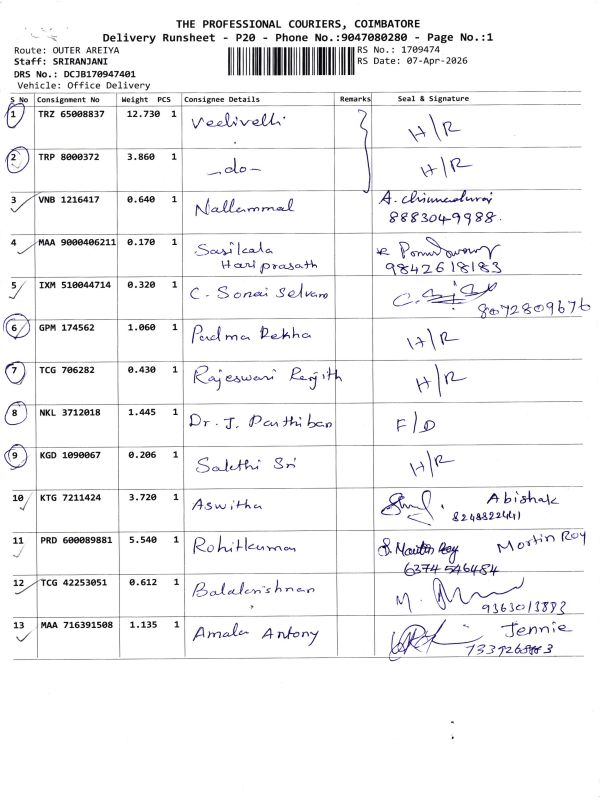 THE PROFESSIONAL COURIERS, COIMBATORE
Delivery Runsheet - P20 - Phone No.:9047080280 - Page No.:1
Route: OUTER AREIYA
RS No.: 1709474
Staff: SRIRANJANI
RS Date: 07-Apr-2026
DRS No.: DCJB170947401
Vehicle: Office Delivery
S No Consignment No Weight PCS Consignee Details Remarks Seal & Signature
1 TRZ 65008837 12.730 1 Veelivelli H/R
2 TRP 8000372 3.860 1 -do- H/R
3 VNB 1216417 0.640 1 Nallammal A. Chinnadurai
8883049988.
4 MAA 9000406211 0.170 1 Sasikala
Hariprasath 9842618183
5 IXM 510044714 0.320 1 C. Sonai Selvam
8072809676
6 GPM 174562 1.060 1 Padma Rekha H/R
7 TCG 706282 0.430 1 Rajeswari Renjith H/R
8 NKL 3712018 1.445 1 Dr. J. Parthiban F/D
9 KGD 1090067 0.206 1 Sakthi Sri H/R
10 KTG 7211424 3.720 1 Aswitha Abishak
8248822441
11 PRD 600089881 5.540 1 Rohitkumar S. Martin Roy Mortin Roy
6374546484
12 TCG 42253051 0.612 1 Balakrishnan M.
9363013883
13 MAA 716391508 1.135 1 Amala Antony Jennie